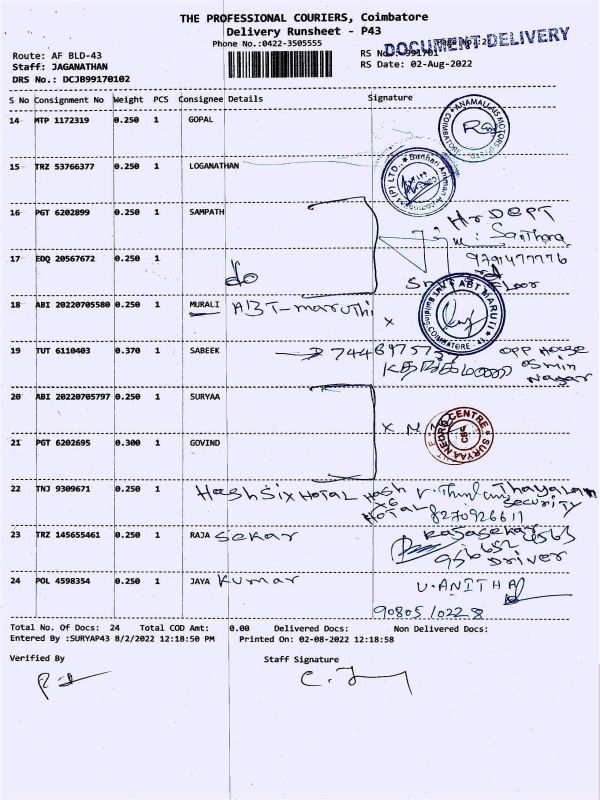 THE PROFESSIONAL COURIERS, Coimbatore
Delivery Runsheet - P43
Phone No.:0422-3505555
DOCUMENT DELIVERY
Route: AF BLD-43
RS No
Staff: JAGANATHAN
RS Date: 02-Aug-2022
DRS No.: DCJB99170102
S No Consignment No Weight PCS Consignee Details Signature
14 MTP 1172319 0.250 1 GOPAL
15 TRZ 53766377 0.250 1 LOGANATHAN
16 PGT 6202899 0.250 1 SAMPATH
Hr DEPT
17 EDQ 20567672 0.250 1 do
9791477776
18 ABI 20220705580 0.250 1 MURALI ABT-maruthi x
ABT MARUTI
COIMBATORE - 43
19 TUT 6110403 0.370 1 SABEEK
opp House
Nagar
20 ABI 20220705797 0.250 1 SURYAA
SURYAA NEURO CENTRE
CBE
x
21 PGT 6202695 0.300 1 GOVIND
22 TNJ 9309671 0.250 1 Hash Six HOTAL Hash
Thayalan
HOTAL
Security
8270926611
23 TRZ 145655461 0.250 1 RAJA Sekar
Rajasekar
DRIVER
24 POL 4598354 0.250 1 JAYA Kumar
V.ANITHA
90805 10228
Total No. Of Docs: 24 Total COD Amt: 0.00 Delivered Docs: Non Delivered Docs:
Entered By :SURYAP43 8/2/2022 12:18:50 PM Printed On: 02-08-2022 12:18:58
Verified By Staff Signature